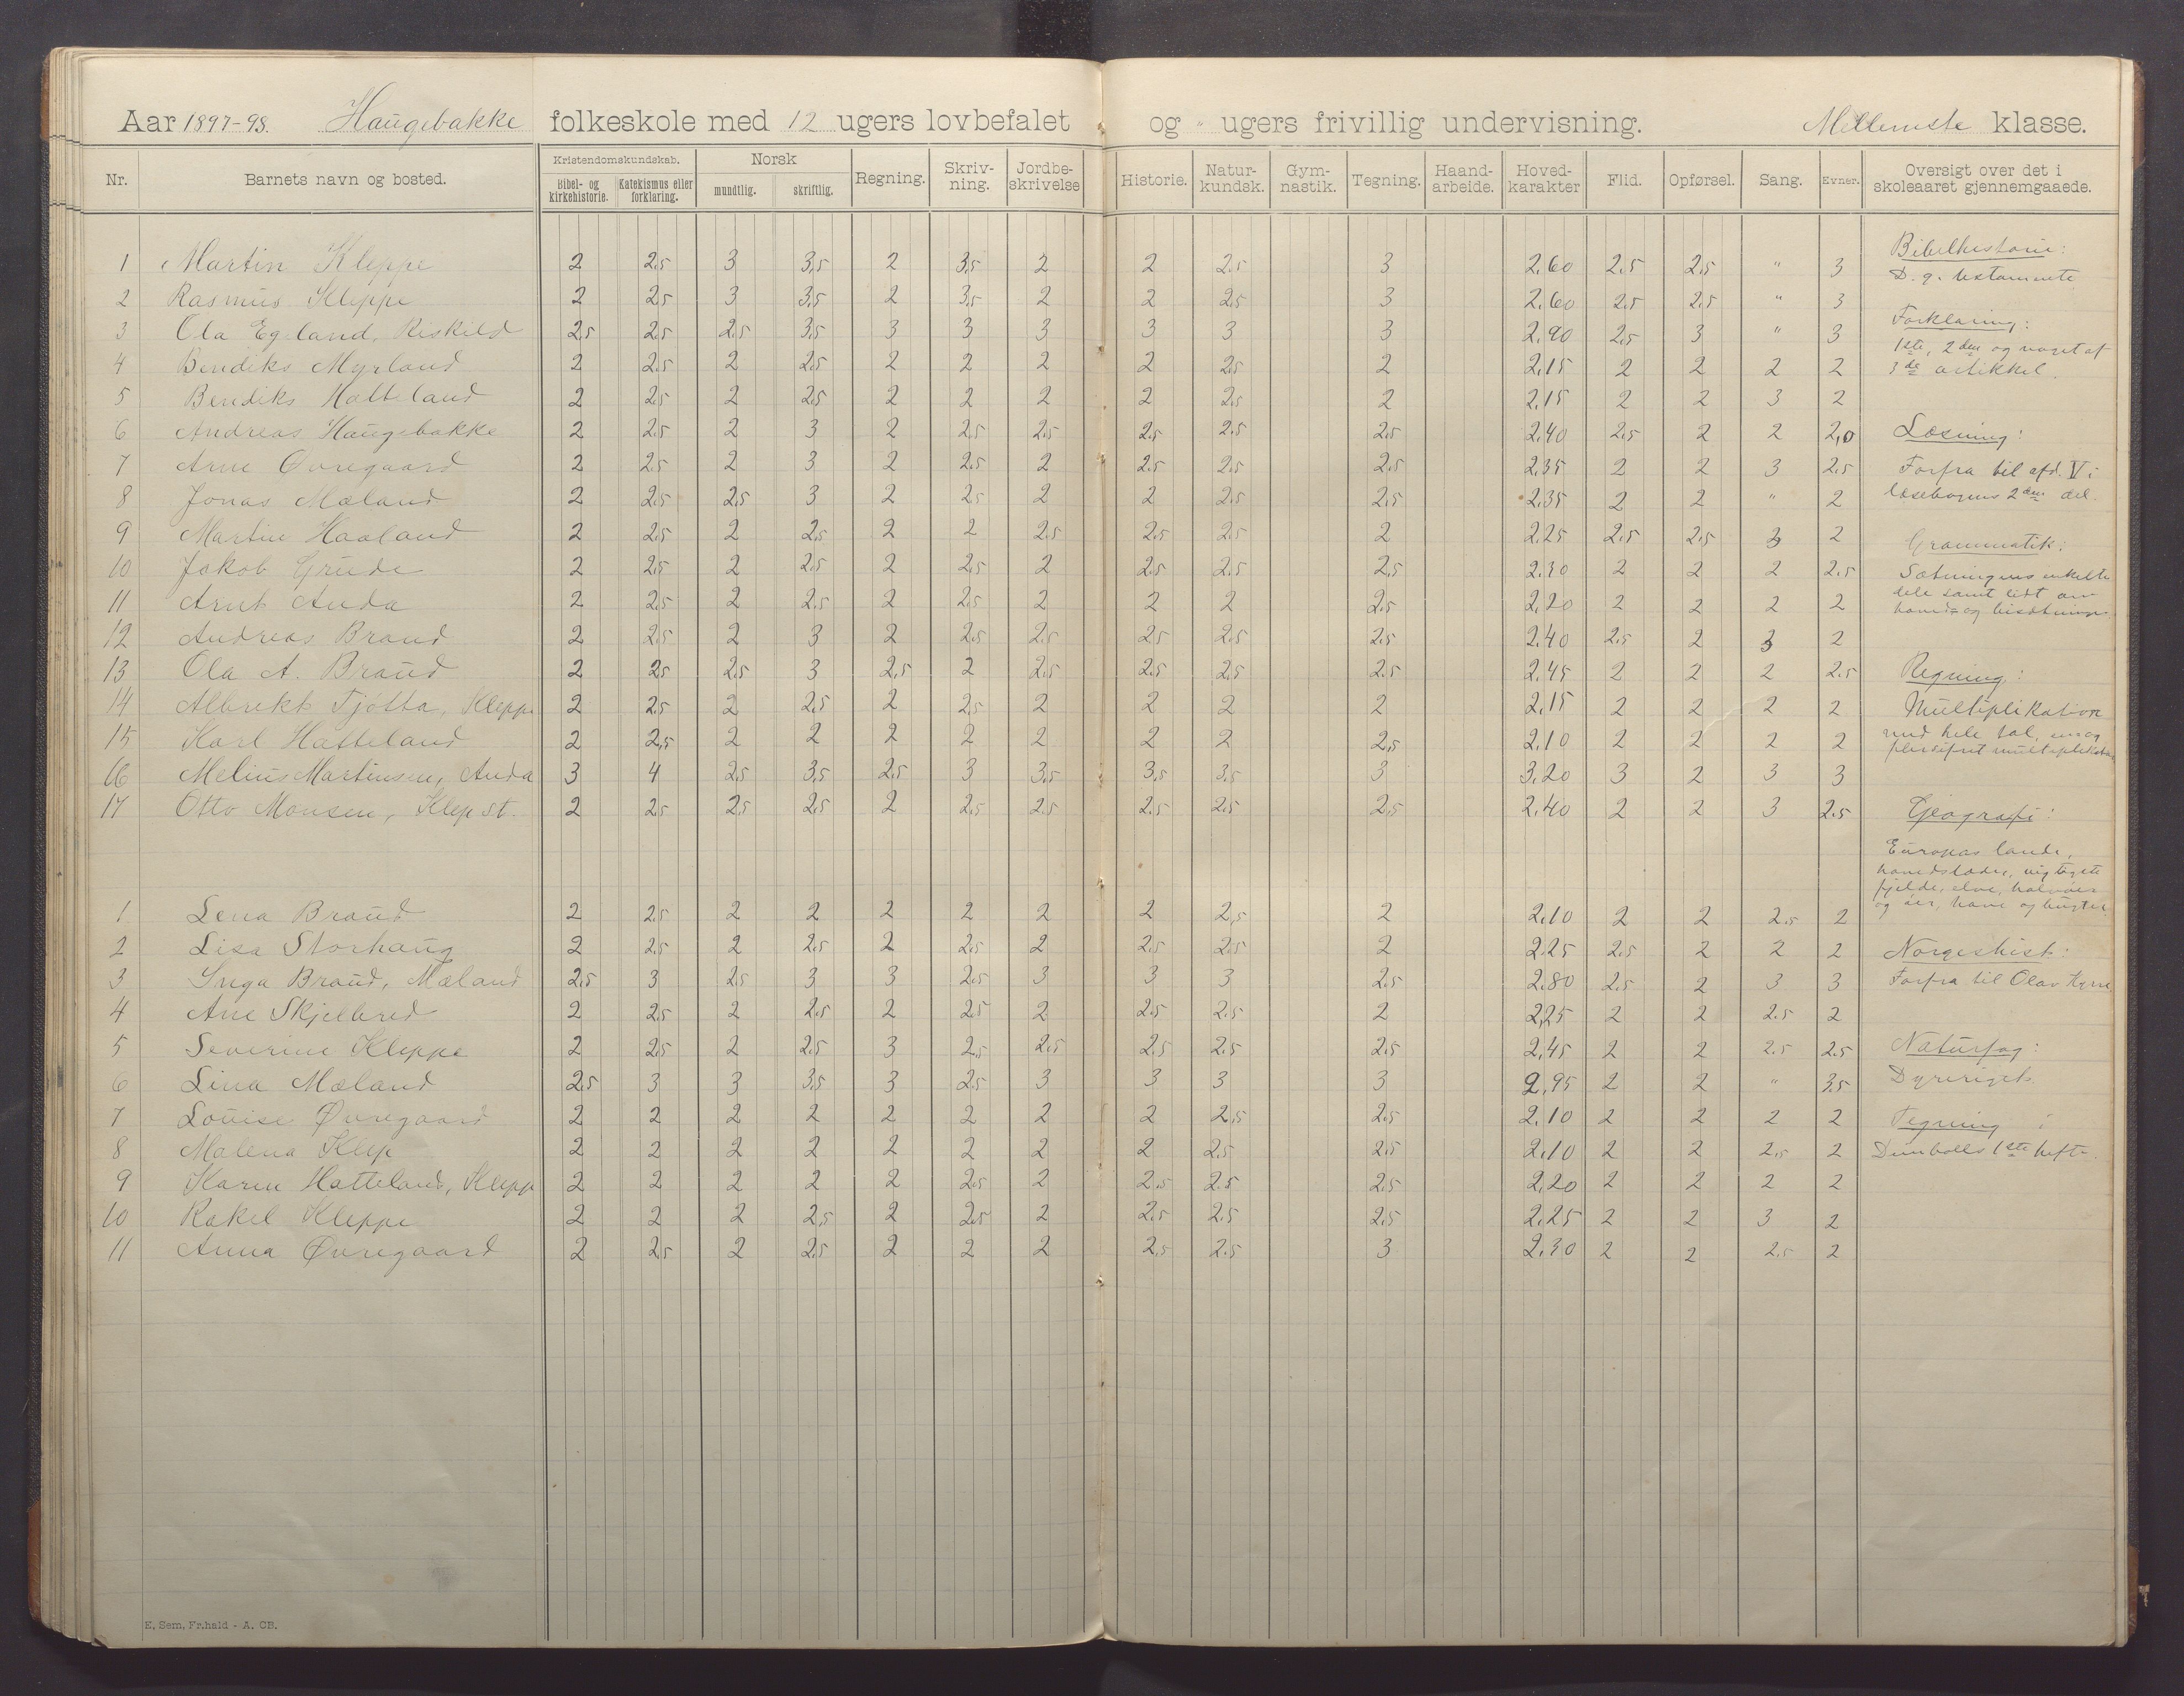 Aar 1897-98. Haugebakke folkeskole med 12 ugers lovbefalet og " ugers frivillig undervisning. Mellemste klasse.
Nr. Barnets navn og bosted. Kristendomskundskab. Bibel- og kirkehistorie. Katekismus eller forklaring. Norsk mundtlig. skriftlig. Regning. Skriv-ning. Jordbe-skrivelse Historie. Natur-kundsk. Gym-nastik. Tegning. Haand-arbeide. Hoved-karakter Flid. Opførsel. Sang. Evner. Oversigt over det i skoleaaret gjennemgaaede.
1 Martin Kleppe 2 2.5 3 3,5 2 3,5 2 2 2.5 3 2,60 2.5 2.5 " 3
2 Rasmus Kleppe 2 2.5 3 3.5 2 3.5 2 2 2.5 3 2.60 2.5 2.5 " 3
3 Ola Egeland, Riskild 2.5 2.5 2.5 3.5 3 3 3 3 3 3 2,90 2.5 3 " 3
4 Bendiks Myrland 2 2.5 2 2.5 2 2 2 2 2.5 2 2,15 2 2 2 2
5 Bendiks Hatteland 2 2.5 2 2.5 2 2 2 2 2.5 2 2,15 2 2 3 2
6 Andreas Haugebakke 2 2.5 2 3 2 2.5 2.5 2.5 2.5 2.5 2.40 2.5 2 2 2,0
7 Arne Øvregaard 2 2.5 2 3 2 2.5 2 2.5 2.5 2.5 2.35 2 2 3 2.5
8 Jonas Mæland 2 2.5 2.5 3 2 2.5 2 2 2.5 2.5 2.35 2 2 " 2
9 Martin Haaland 2 2.5 2 2.5 2 2 2.5 2.5 2.5 2 2.25 2.5 2.5 3 2
10 Jakob Grude 2 2.5 2 2.5 2 2.5 2 2.5 2.5 2,5 2.30 2 2 2 2.5
11 Arnt Anda 2 2.5 2 2.5 2 2.5 2 2 2 2.5 2,20 2 2 2 2
12 Andreas Braud 2 2.5 2 3 2 2.5 2.5 2.5 2.5 2.5 2.40 2.5 2 3 2
13 Ola A. Braud 2 2.5 2.5 3 2,5 2 2.5 2.5 2.5 2.5 2.45 2 2 2 2.5
14 Albrekt Tjøtta, Kleppe 2 2.5 2 2.5 2 2.5 2 2 2 2 2,15 2 2 2 2
15 Karl Hatteland 2 2,5 2 2 2 2 2 2 2 2,5 2,10 2 2 2 2
16 Melius Martinsen, Anda 3 4 2.5 3,5 2.5 3 3.5 3,5 3.5 3 3.20 3 2 3 3
17 Otto Monsen, Klep st. 2 2.5 2.5 2.5 2 2.5 2.5 2.5 2.5 2.5 2.40 2 2 3 2.5
1 Lena Braud 2 2.5 2 2 2 2 2 2 2,5 2 2.10 2 2 2.5 2
2 Lisa Storhaug 2 2.5 2 2.5 2 2.5 2 2.5 2.5 2 2.25 2.5 2 2 2
3 Inga Braud, Mæland 2.5 3 2.5 3 3 2.5 3 3 3 2.5 2.80 2.5 2 3 3
4 Ane Skjelbred 2 2.5 2 2.5 2 2.5 2 2.5 2.5 2 2,25 2 2 2.5 2
5 Severine Kleppe 2 2.5 2 2.5 3 2.5 2.5 2.5 2.5 2.5 2,45 2 2 2.5 2.5
6 Lina Mæland 2.5 3 3 3.5 3 2.5 3 3 3 3 2,95 2 2 " 3.5
7 Louise Øvregaard 2 2 2 2 2 2 2 2 2,5 2.5 2.10 2 2 2 2
8 Malena Klep 2 2 2 2 2 2 2 2 2.5 2.5 2.10 2 2 2,5 2
9 Karen Hatteland, Klepp 2 2 2 2 2 2.5 2 2.5 2.5 2.5 2,20 2 2 2 2
10 Rakel Kleppe 2 2 2 2,5 2 2.5 2 2.5 2.5 2.5 2.25 2 2 3 2
11 Anna Øvregaard 2 2.5 2 2.5 2 2 2 2.5 2.5 3 2.30 2 2 2.5 2
Bibelhistorie:
D. g. testamente
Forklaring:
1ste, 2den og noget af
3de artikkel.
Læsning:
Forfra til afd. V i
læsebogens 2den del.
Grammatik:
Sætningens enkelte
dele samt lidt om
hoved- og bisætninger
Regning:
Multiplikation
med hele tal, en og
flersifret multiplikator
Geografi:
Europas lande,
hovedstæder, vigtigste
fjelde, elve, halvøer
og øer, have og bugter.
Norgeshist:
Forfra til Olav Kyrre
Naturfag:
Dyreriget.
Tegning:
1ste hefte.
E. Sem, Fr.hald - A. CB.